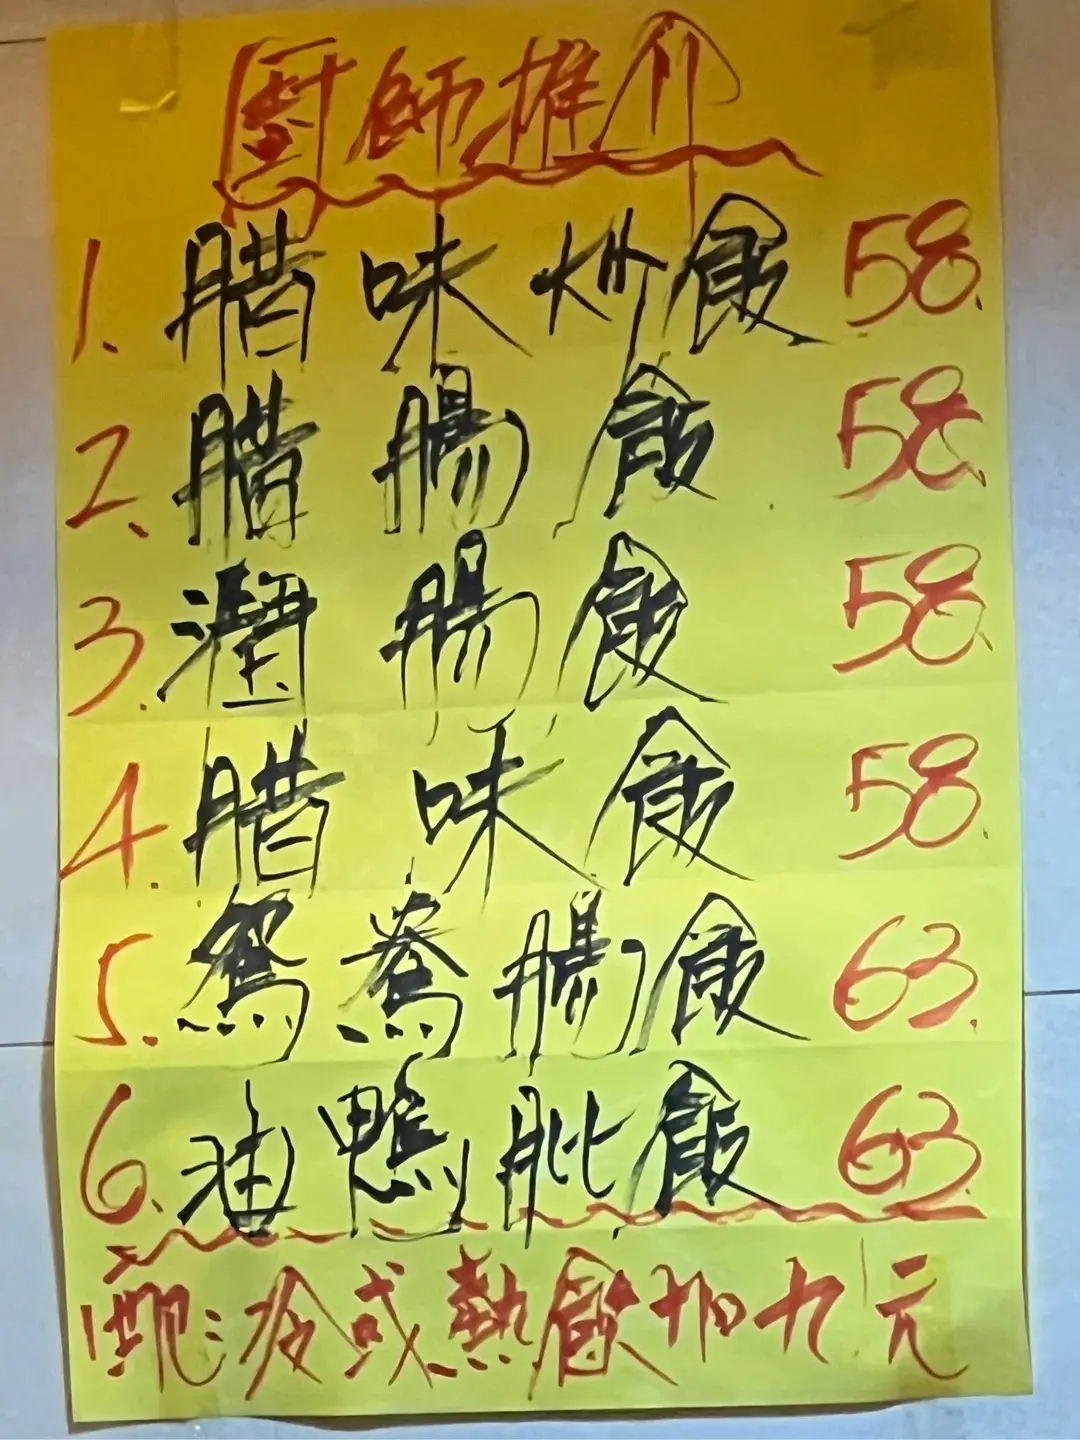 廚師推介
1. 腊味炒飯 58.
2. 腊腸飯 58.
3. 潤腸飯 58.
4. 腊味飯 58.
5. 鴛鴦腸飯 63.
6. 油鴨肶飯 63.
配:冷或熱飲加九元